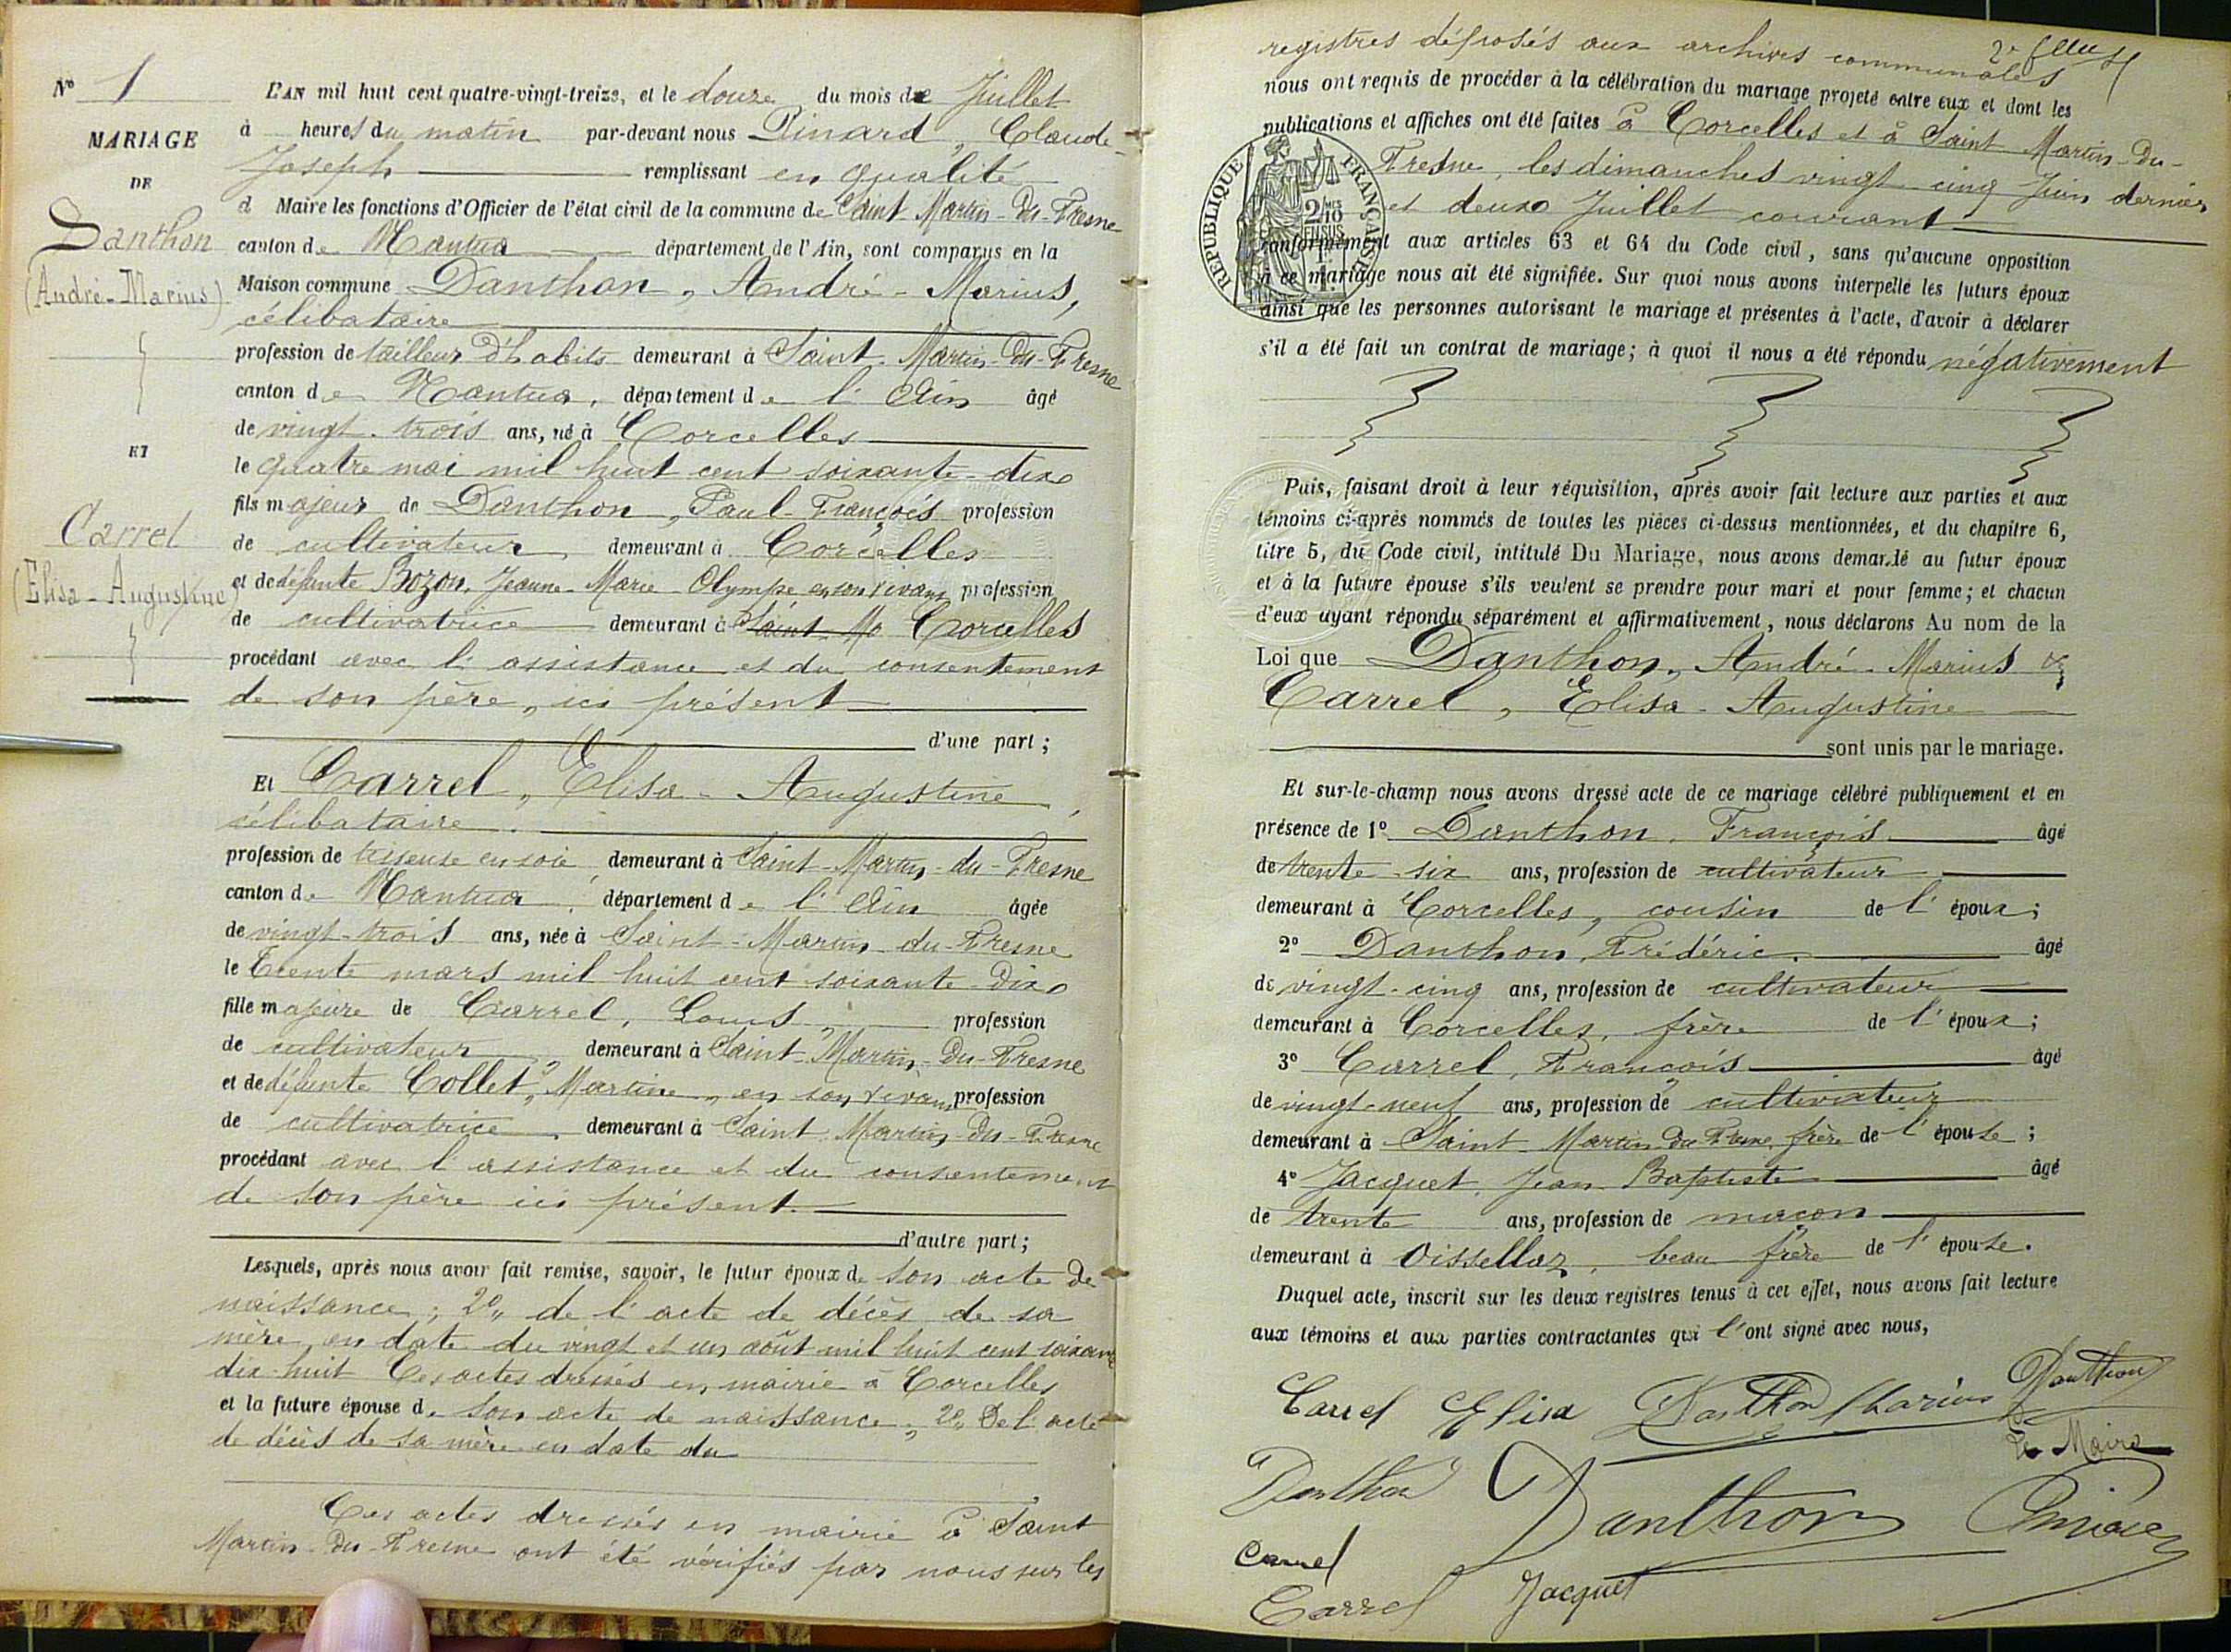 N° 1
MARIAGE
DE
Danthon
(André-Marius)
ET
Carrel
(Elisa-Augustine)
L'AN mil huit cent quatre-vingt-treize, et le douze du mois de Juillet
à heures du matin par-devant nous Pinard, Claude-
Joseph remplissant en qualité
d Maire les fonctions d'Officier de l'état civil de la commune de Saint-Martin-du-Fresne
canton de Nantua département de l'Ain, sont comparus en la
Maison commune Danthon, André-Marius,
célibataire
profession de tailleur d'habits demeurant à Saint-Martin-du-Fresne
canton de Nantua, département de l'Ain âgé
de vingt-trois ans, né à Corcelles
le quatre mai mil huit cent soixante-dix
fils majeur de Danthon, Paul-François profession
de cultivateur demeurant à Corcelles
et de défunte Bozon, Jeanne-Marie-Olympe en son vivant profession
de cultivatrice demeurant à Saint-Ma Corcelles
procédant avec l'assistance et du consentement
de son père, ici présent
d'une part;
Et Carrel, Elisa-Augustine,
célibataire.
profession de tisseuse en soie demeurant à Saint-Martin-du-Fresne
canton de Nantua, département de l'Ain âgée
de vingt-trois ans, née à Saint-Martin-du-Fresne
le trente mars mil huit cent soixante-dix
fille majeure de Carrel, Louis, profession
de cultivateur demeurant à Saint-Martin-Du-Fresne
et de défunte Collet, Martine, en son vivant profession
de cultivatrice demeurant à Saint-Martin-du-Fresne
procédant avec l'assistance et du consentement
de son père ici présent.
d'autre part;
Lesquels, après nous avoir fait remise, savoir, le futur époux de son acte de
naissance; 2° de l'acte de décès de sa
mère en date du vingt et un août mil huit cent soixante
dix-huit Ces actes dressés en mairie à Corcelles
et la future épouse de son acte de naissance, 2° De l'acte
de décès de sa mère en date du
Ces actes dressés en mairie à Saint
Martin-du-Fresne ont été vérifiés par nous sur les
2e
registres déposés aux archives communales
nous ont requis de procéder à la célébration du mariage projeté entre eux et dont les
publications et affiches ont été faites à Corcelles et à Saint Martin-Du-
Fresne, les dimanches vingt-cinq Juin dernier
et deux Juillet courant
conformément aux articles 63 et 64 du Code civil, sans qu'aucune opposition
à ce mariage nous ait été signifiée. Sur quoi nous avons interpellé les futurs époux
ainsi que les personnes autorisant le mariage et présentes à l'acte, d'avoir à déclarer
s'il a été fait un contrat de mariage; à quoi il nous a été répondu négativement
RÉPUBLIQUE FRANÇAISE
2/10 EN SUS
Puis, faisant droit à leur réquisition, après avoir fait lecture aux parties et aux
témoins ci-après nommés de toutes les pièces ci-dessus mentionnées, et du chapitre 6,
titre 5, du Code civil, intitulé Du Mariage, nous avons demandé au futur époux
et à la future épouse s'ils veulent se prendre pour mari et pour femme; et chacun
d'eux ayant répondu séparément et affirmativement, nous déclarons Au nom de la
Loi que Danthon, André-Marius &
Carrel, Elisa-Augustine
sont unis par le mariage.
Et sur-le-champ nous avons dressé acte de ce mariage célébré publiquement et en
présence de 1° Danthon, François âgé
de trente-six ans, profession de cultivateur
demeurant à Corcelles, cousin de l'époux;
2° Danthon, Frédéric. âgé
de vingt-cinq ans, profession de cultivateur
demeurant à Corcelles, frère de l'époux;
3° Carrel, François âgé
de vingt-neuf ans, profession de cultivateur
demeurant à Saint-Martin-du-Fresne, frère de l'épouse;
4° Jacquet, Jean-Baptiste âgé
de trente ans, profession de maçon
demeurant à Oissellaz, beau frère de l'épouse.
Duquel acte, inscrit sur les deux registres tenus à cet effet, nous avons fait lecture
aux témoins et aux parties contractantes qui l'ont signé avec nous,
Carrel Elisa Danthon Marius Danthon
Le Maire
Danthon Danthon
Carrel
Carrel Jacquet